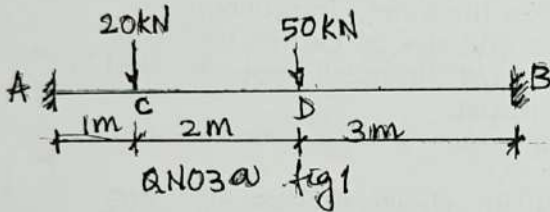 20kN 50kN
A B
C D
1m 2m 3m
QNO3a fig1